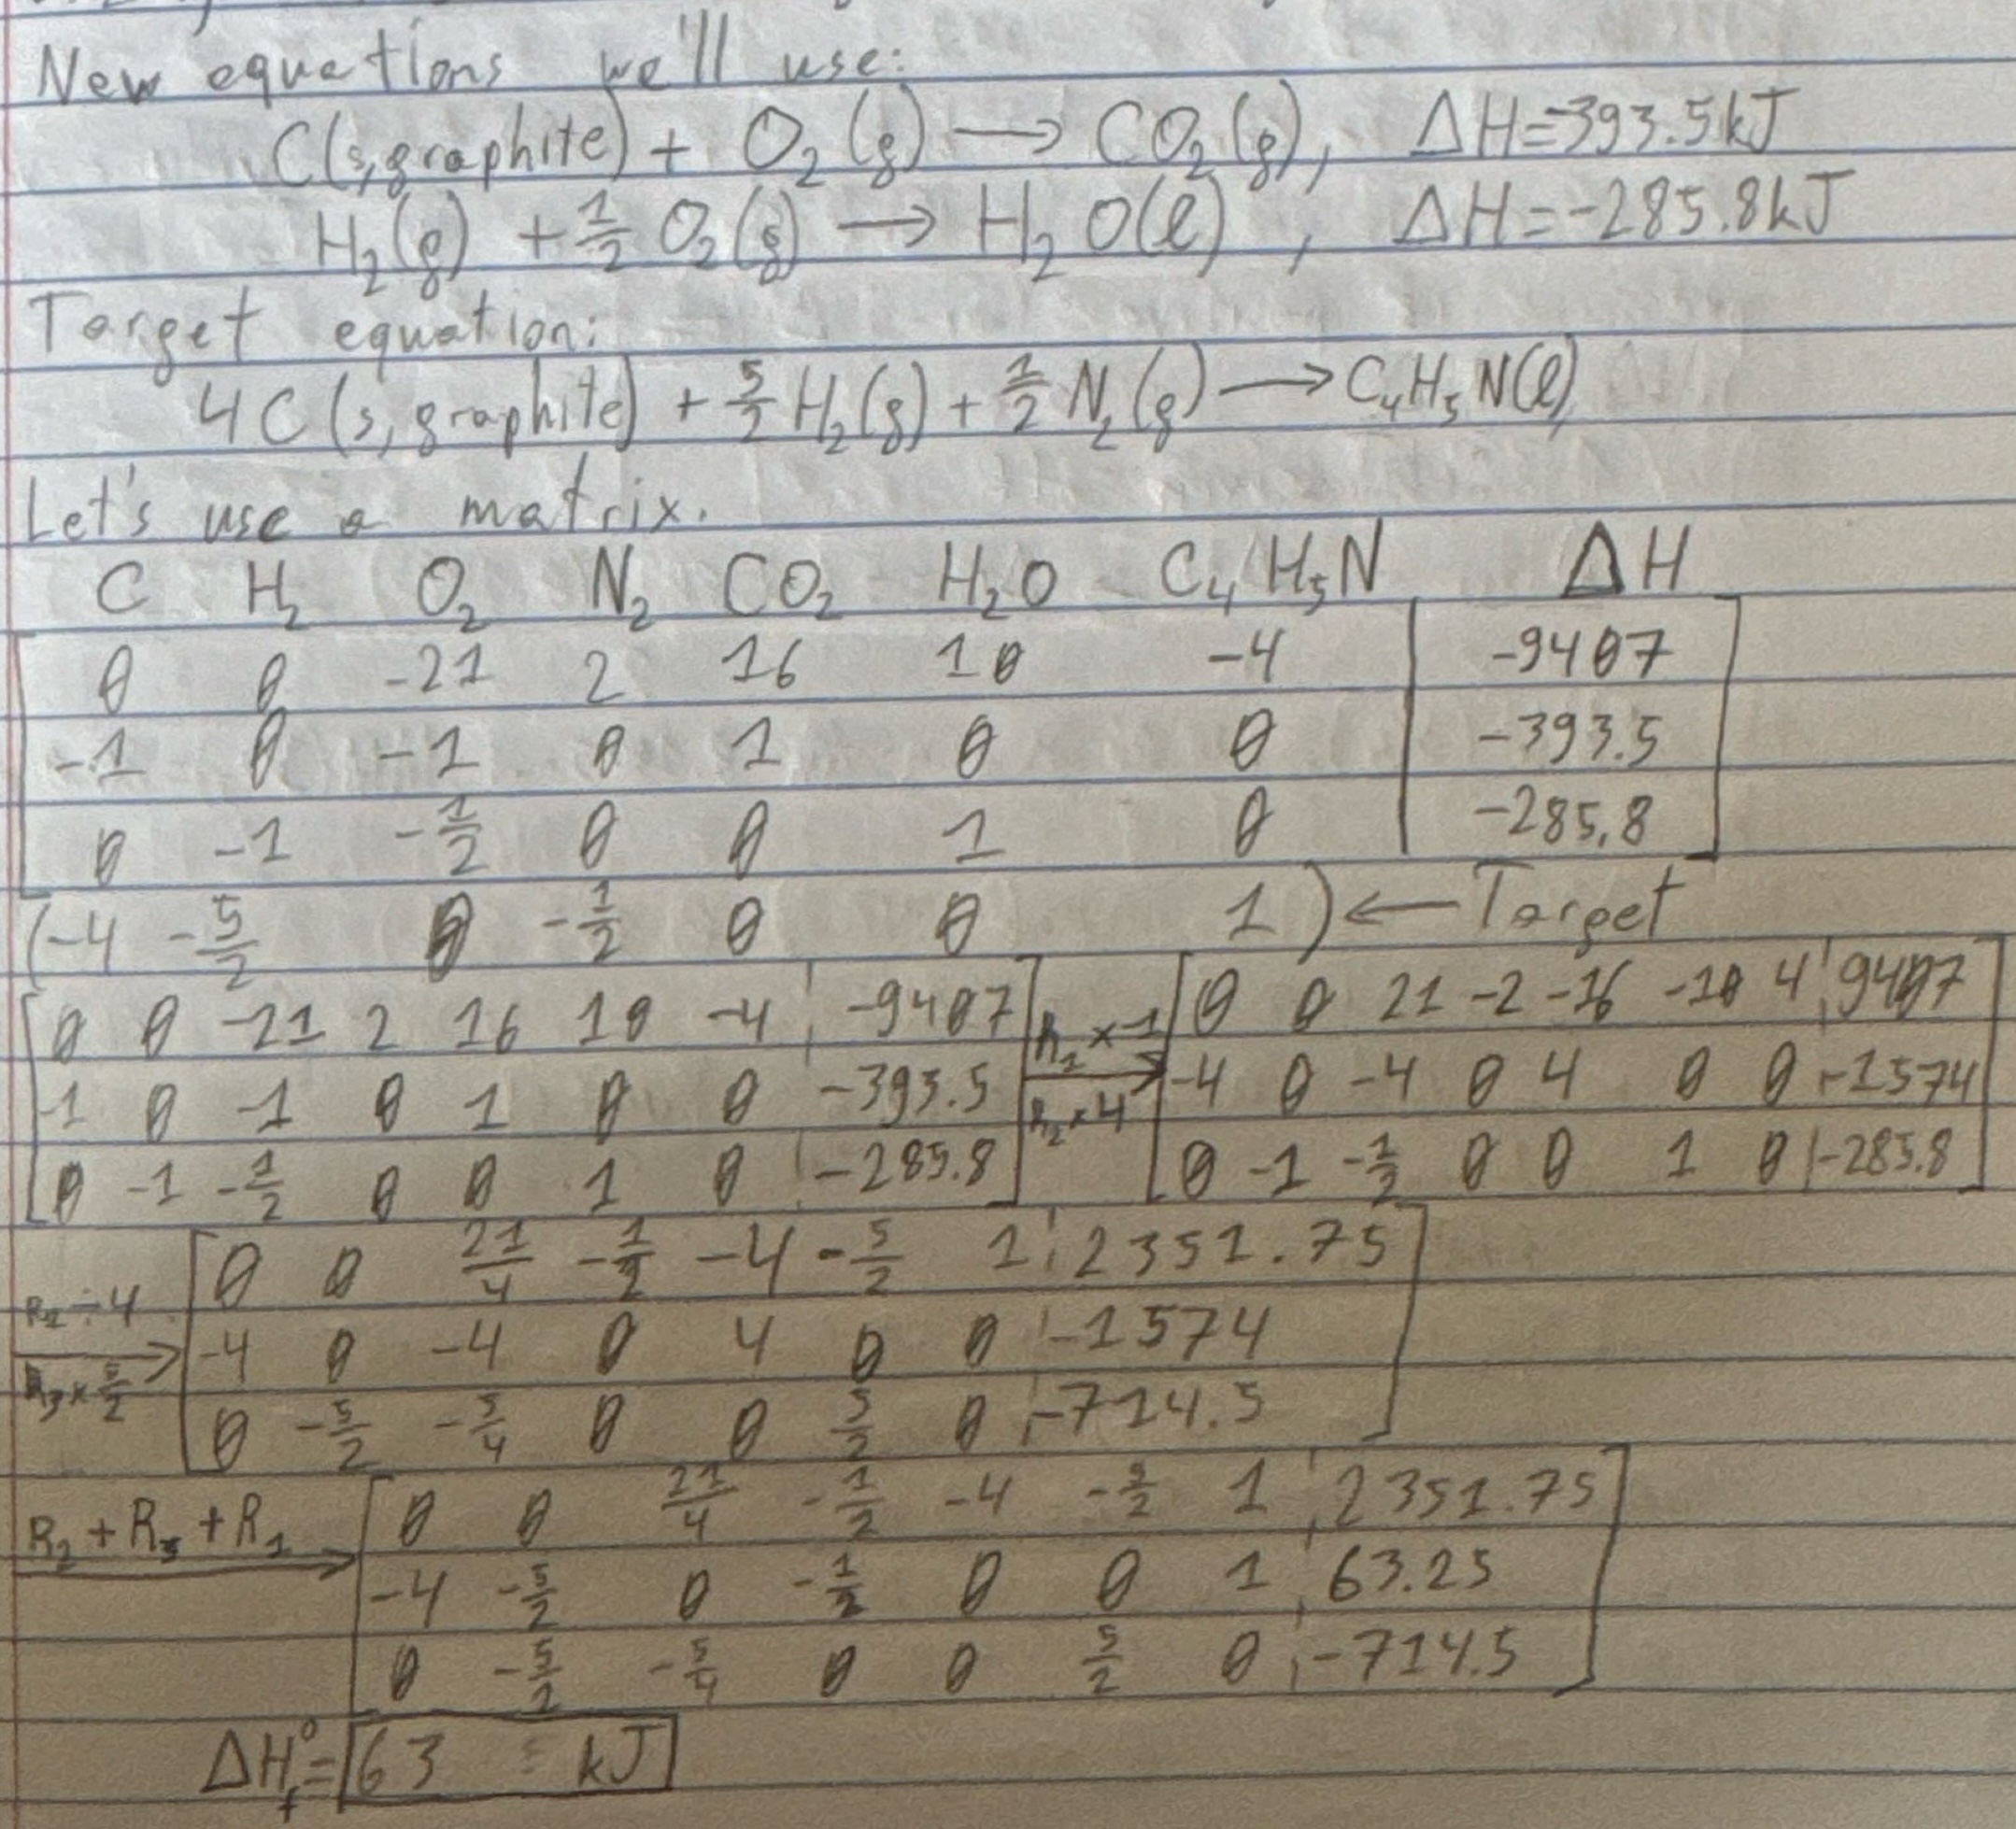 New equations we'll use:
C(s,graphite) + O₂(g) → CO₂(g), ΔH=-393.5kJ
H₂(g) + 1/2 O₂(g) → H₂O(l), ΔH=-285.8kJ
Target equation:
4C(s,graphite) + 5/2 H₂(g) + 1/2 N₂(g) → C₄H₅N(l)
Let's use a matrix.
C H₂ O₂ N₂ CO₂ H₂O C₄H₅N ΔH
[0 0 -21 2 16 10 -4 | -9407]
[-1 0 -1 0 1 0 0 | -393.5]
[0 -1 -1/2 0 0 1 0 | -285.8]
(-4 -5/2 0 -1/2 0 0 1) ← Target
[0 0 -21 2 16 10 -4 | -9407] R₁×-1 [0 0 21 -2 -16 -10 4 | 9407]
[-1 0 -1 0 1 0 0 | -393.5] → [-4 0 -4 0 4 0 0 | -1574]
R₂×4
[0 -1 -1/2 0 0 1 0 | -285.8] [0 -1 -1/2 0 0 1 0 | -285.8]
[0 0 21/4 -1/2 -4 -5/2 1 | 2351.75]
R₁÷4
→ [-4 0 -4 0 4 0 0 | -1574]
R₃×5/2
[0 -5/2 -5/4 0 0 5/2 0 | -714.5]
[0 0 21/4 -1/2 -4 -5/2 1 | 2351.75]
R₂+R₃+R₁ → [-4 -5/2 0 -1/2 0 0 1 | 63.25]
[0 -5/2 -5/4 0 0 5/2 0 | -714.5]
ΔH°f= 63 kJ